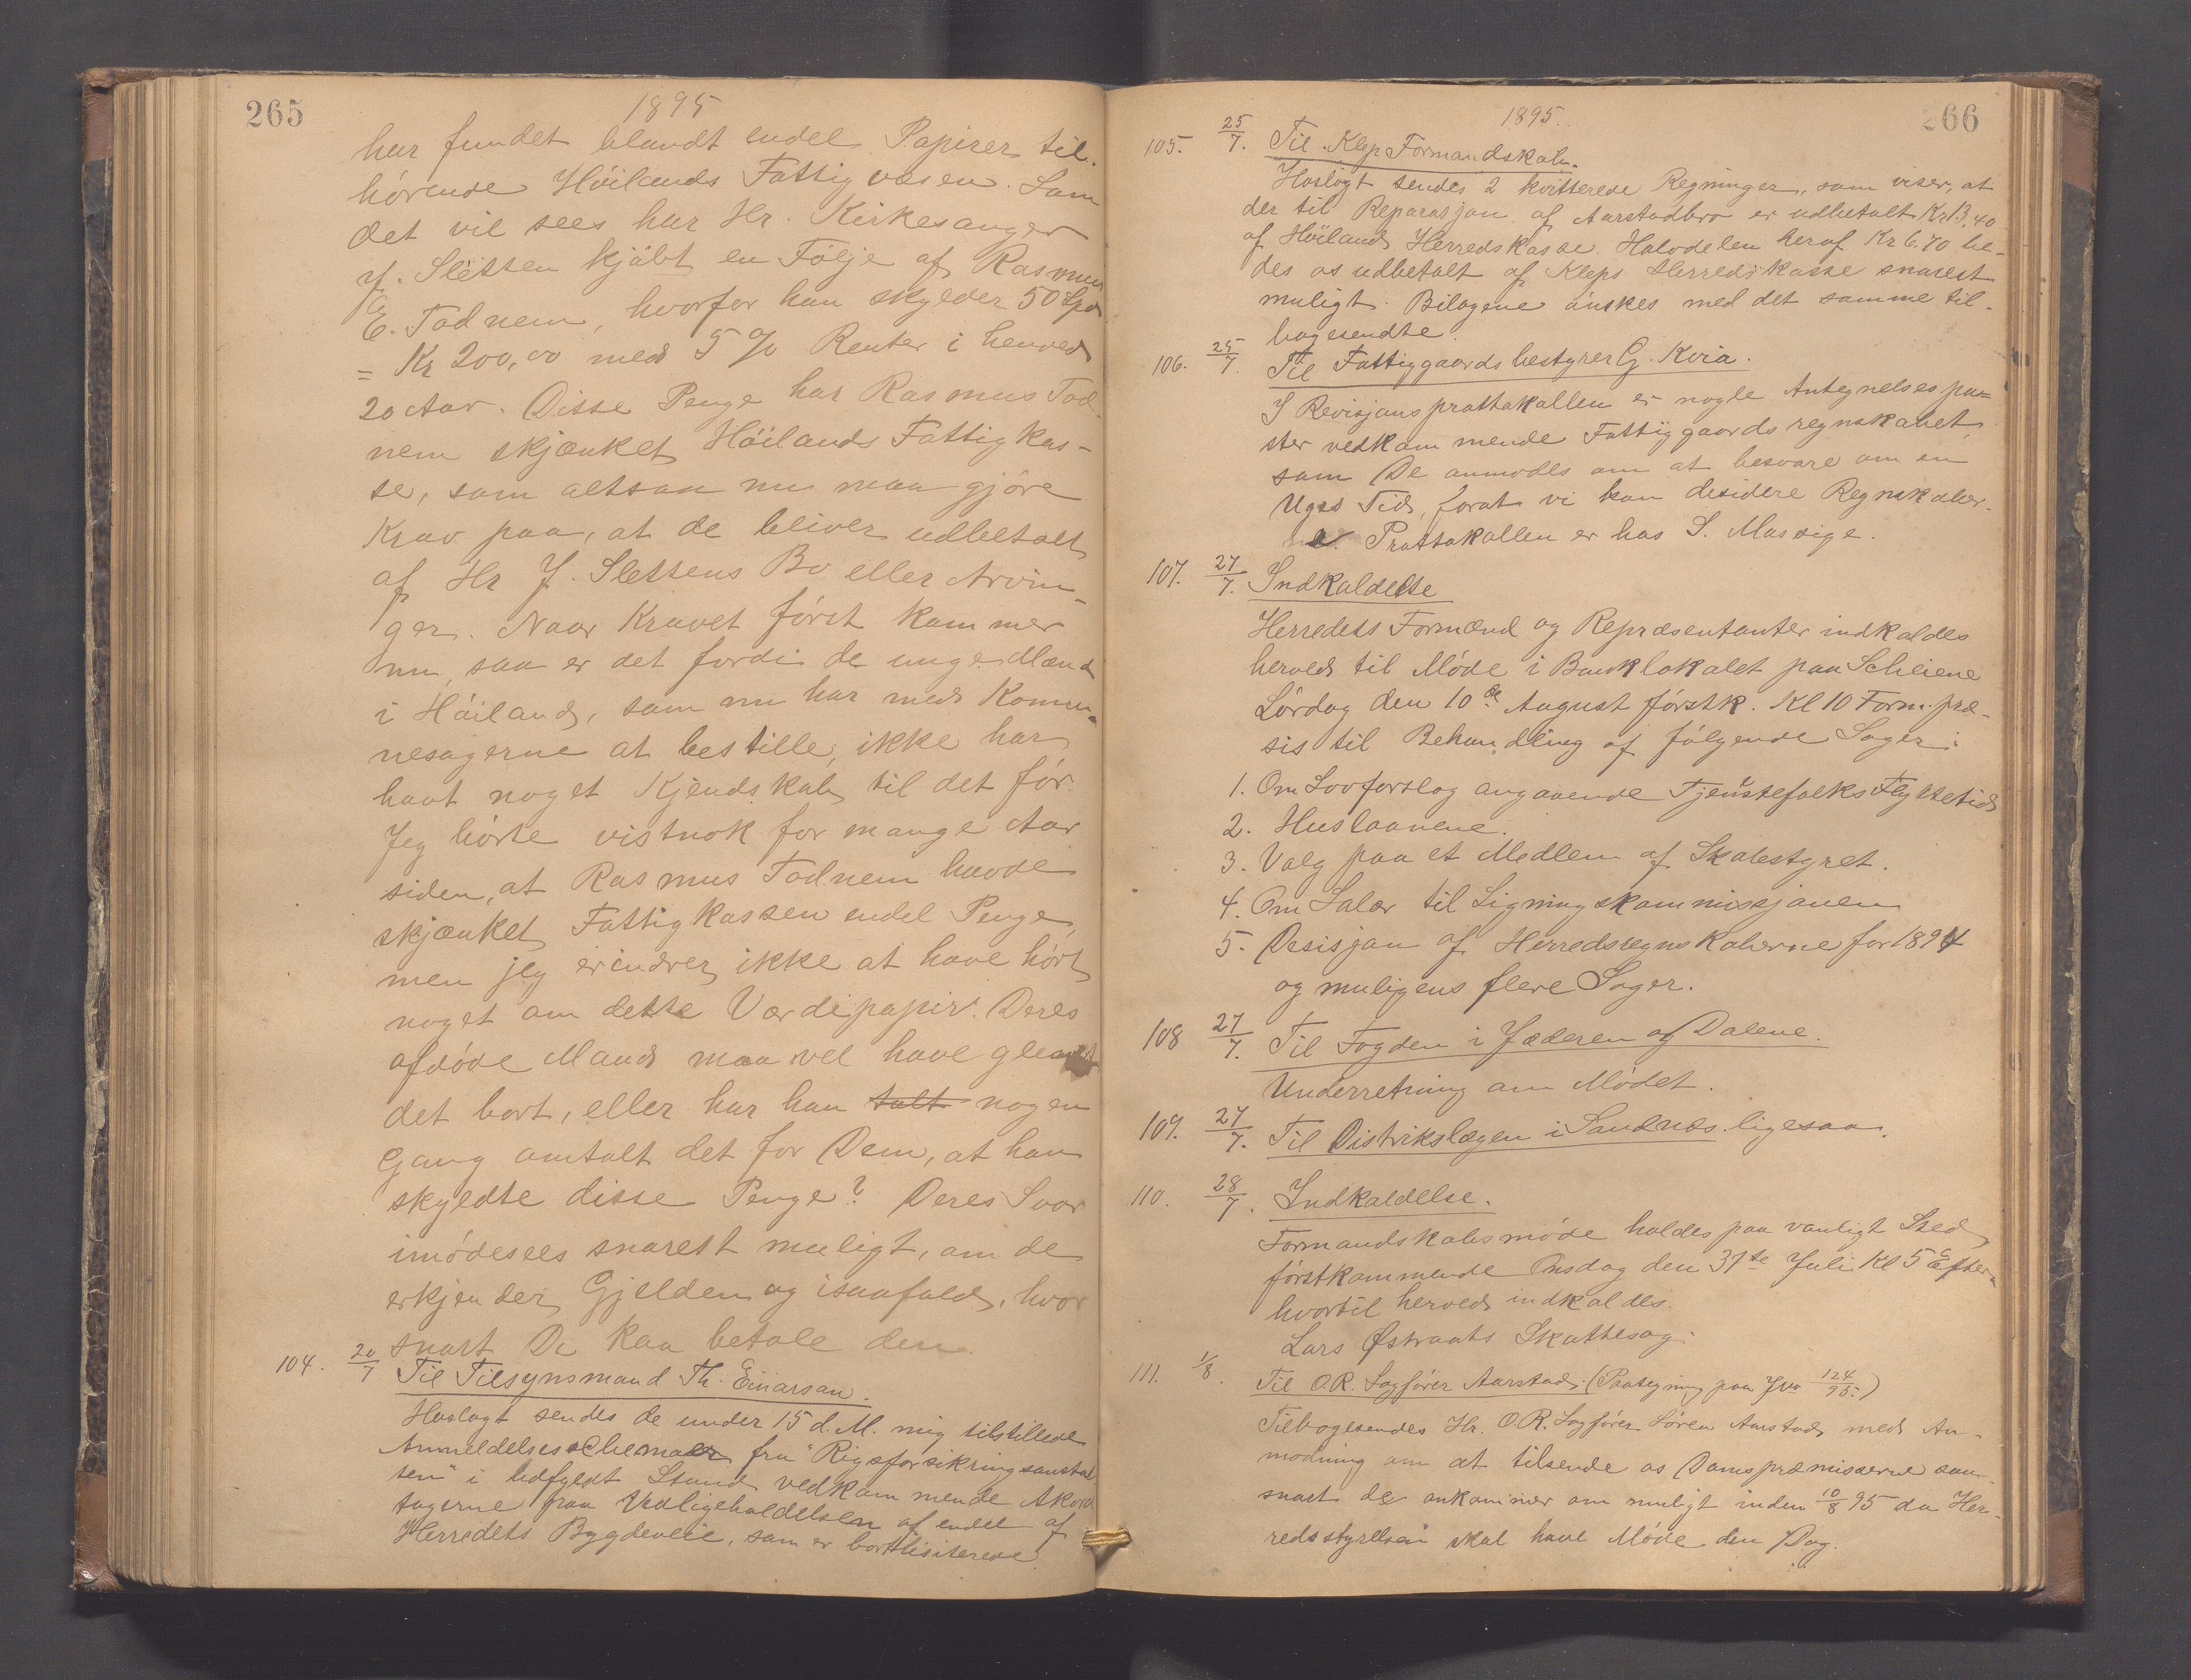 265
1895
har fundet blandt endel Papirer til-
hörende Höilands Fattigvæsen. Som
det vil sees har Hr. Kirkesanger
J. Sletten kjöbt en Följe af Rasmus
E. Todnem, hvorfor han skylder 50 Spd
= Kr 200,00 med 5 % Renter i henved
20 Aar. Disse Penge har Rasmus Tod-
nem skjænket Höilands Fattigkas-
se, som altsaa nu maa gjöre
Krav paa, at de bliver udbetalt
af Hr J. Slettens Bo eller Arvin-
ger. Naar Kravet först kommer
nu, saa er det fordi de unge Mænd
i Höiland, som nu har med Kommu-
nesagerne at bestille, ikke har
havt noget Kjendskab til det för.
Jeg hörte vistnok for mange Aar
siden, at Rasmus Todnem havde
skjænket Fattigkassen endel Penge,
men jeg erindrer ikke at have hört
noget om dette Værdipapir. Deres
afdöde Mand maa vel have glemt
det bort, eller har han talt nogen
Gang omtalt det for Dem, at han
skyldte disse Penge? Deres Svar
imödesees snarest muligt, om de
erkjender Gjelden og isaafald, hvor
snart De kan betale den.
104. 20/7 Til Tilsynsmand Th. Einarsen.
Hoslagt sendes de under 15 d. M. mig tilstillede
Anmeldelsesschemaer fra "Rigsforsikringsanstal
ten" i udfyldt Stand vedkommende Akord
tagerne paa Vedligeholdelsen af endel af
Herredets Bygdeveie, som er bortlisiterede
266
1895.
105. 25/7. Til Klep Formandskab.
Hoslagt sendes 2 kvitterede Regninger, som viser, at
der til Reparasjon af Aarstadbro er udbetalt Kr 13,40
af Höilands Herredskasse. Halvdelen heraf Kr 6.70 be-
des os udbetalt af Kleps Herredskasse snarest
muligt. Bilagene önskes med det samme til-
bagesendte.
106. 25/7. Til Fattiggaardsbestyrer G. Kvia.
I Revisjonsprottokollen er nogle Antegnelsespo-
ster vedkommende Fattiggaardsregnskabet,
som De anmodes om at besvare om en
Uges Tid, forat vi kan desidere Regnskaber-
ne. Prottokollen er hos S. Mossige.
107. 27/7. Indkaldelse
Herredets Formænd og Repræsentanter indkaldes
herved til Möde i Banklokalet paa Scheiene
Lördag den 10de August förstk. Kl 10 Form. præ-
sis til Behandling af fölgende Sager:
1. Om Lovforslag angaaende Tjenstefolks Flyttetid
2. Huslaanene.
3. Valg paa et Medlem af Skolestyret.
4. Om Salær til Ligningskommissjonen
5. Desisjon af Herredsregnskaberne for 1894
og muligens flere Sager.
108 27/7. Til Fogden i Jæderen og Dalene.
Underretning om Mödet.
109. 27/7. Til Distrikslægen i Sandnæs ligesaa.
110. 28/7. Indkaldelse.
Formandskabsmöde holdes paa vanligt Sted
förstkommende Onsdag den 31te Juli Kl 5 Efterm
hvortil herved indkaldes.
Lars Østraats Skattesag.
111. 1/8. Til O.R. Sagförer Aarstad. (Paategning paa Jno 124/95.)
Tilbagesendes Hr. O.R. Sagförer Sören Aarstad, med An-
modning om at tilsende os Domspræmisserne saa-
snart de ankommer om muligt inden 10/8 95 da Her-
redsstyrelsen skal have Möde den Dag.